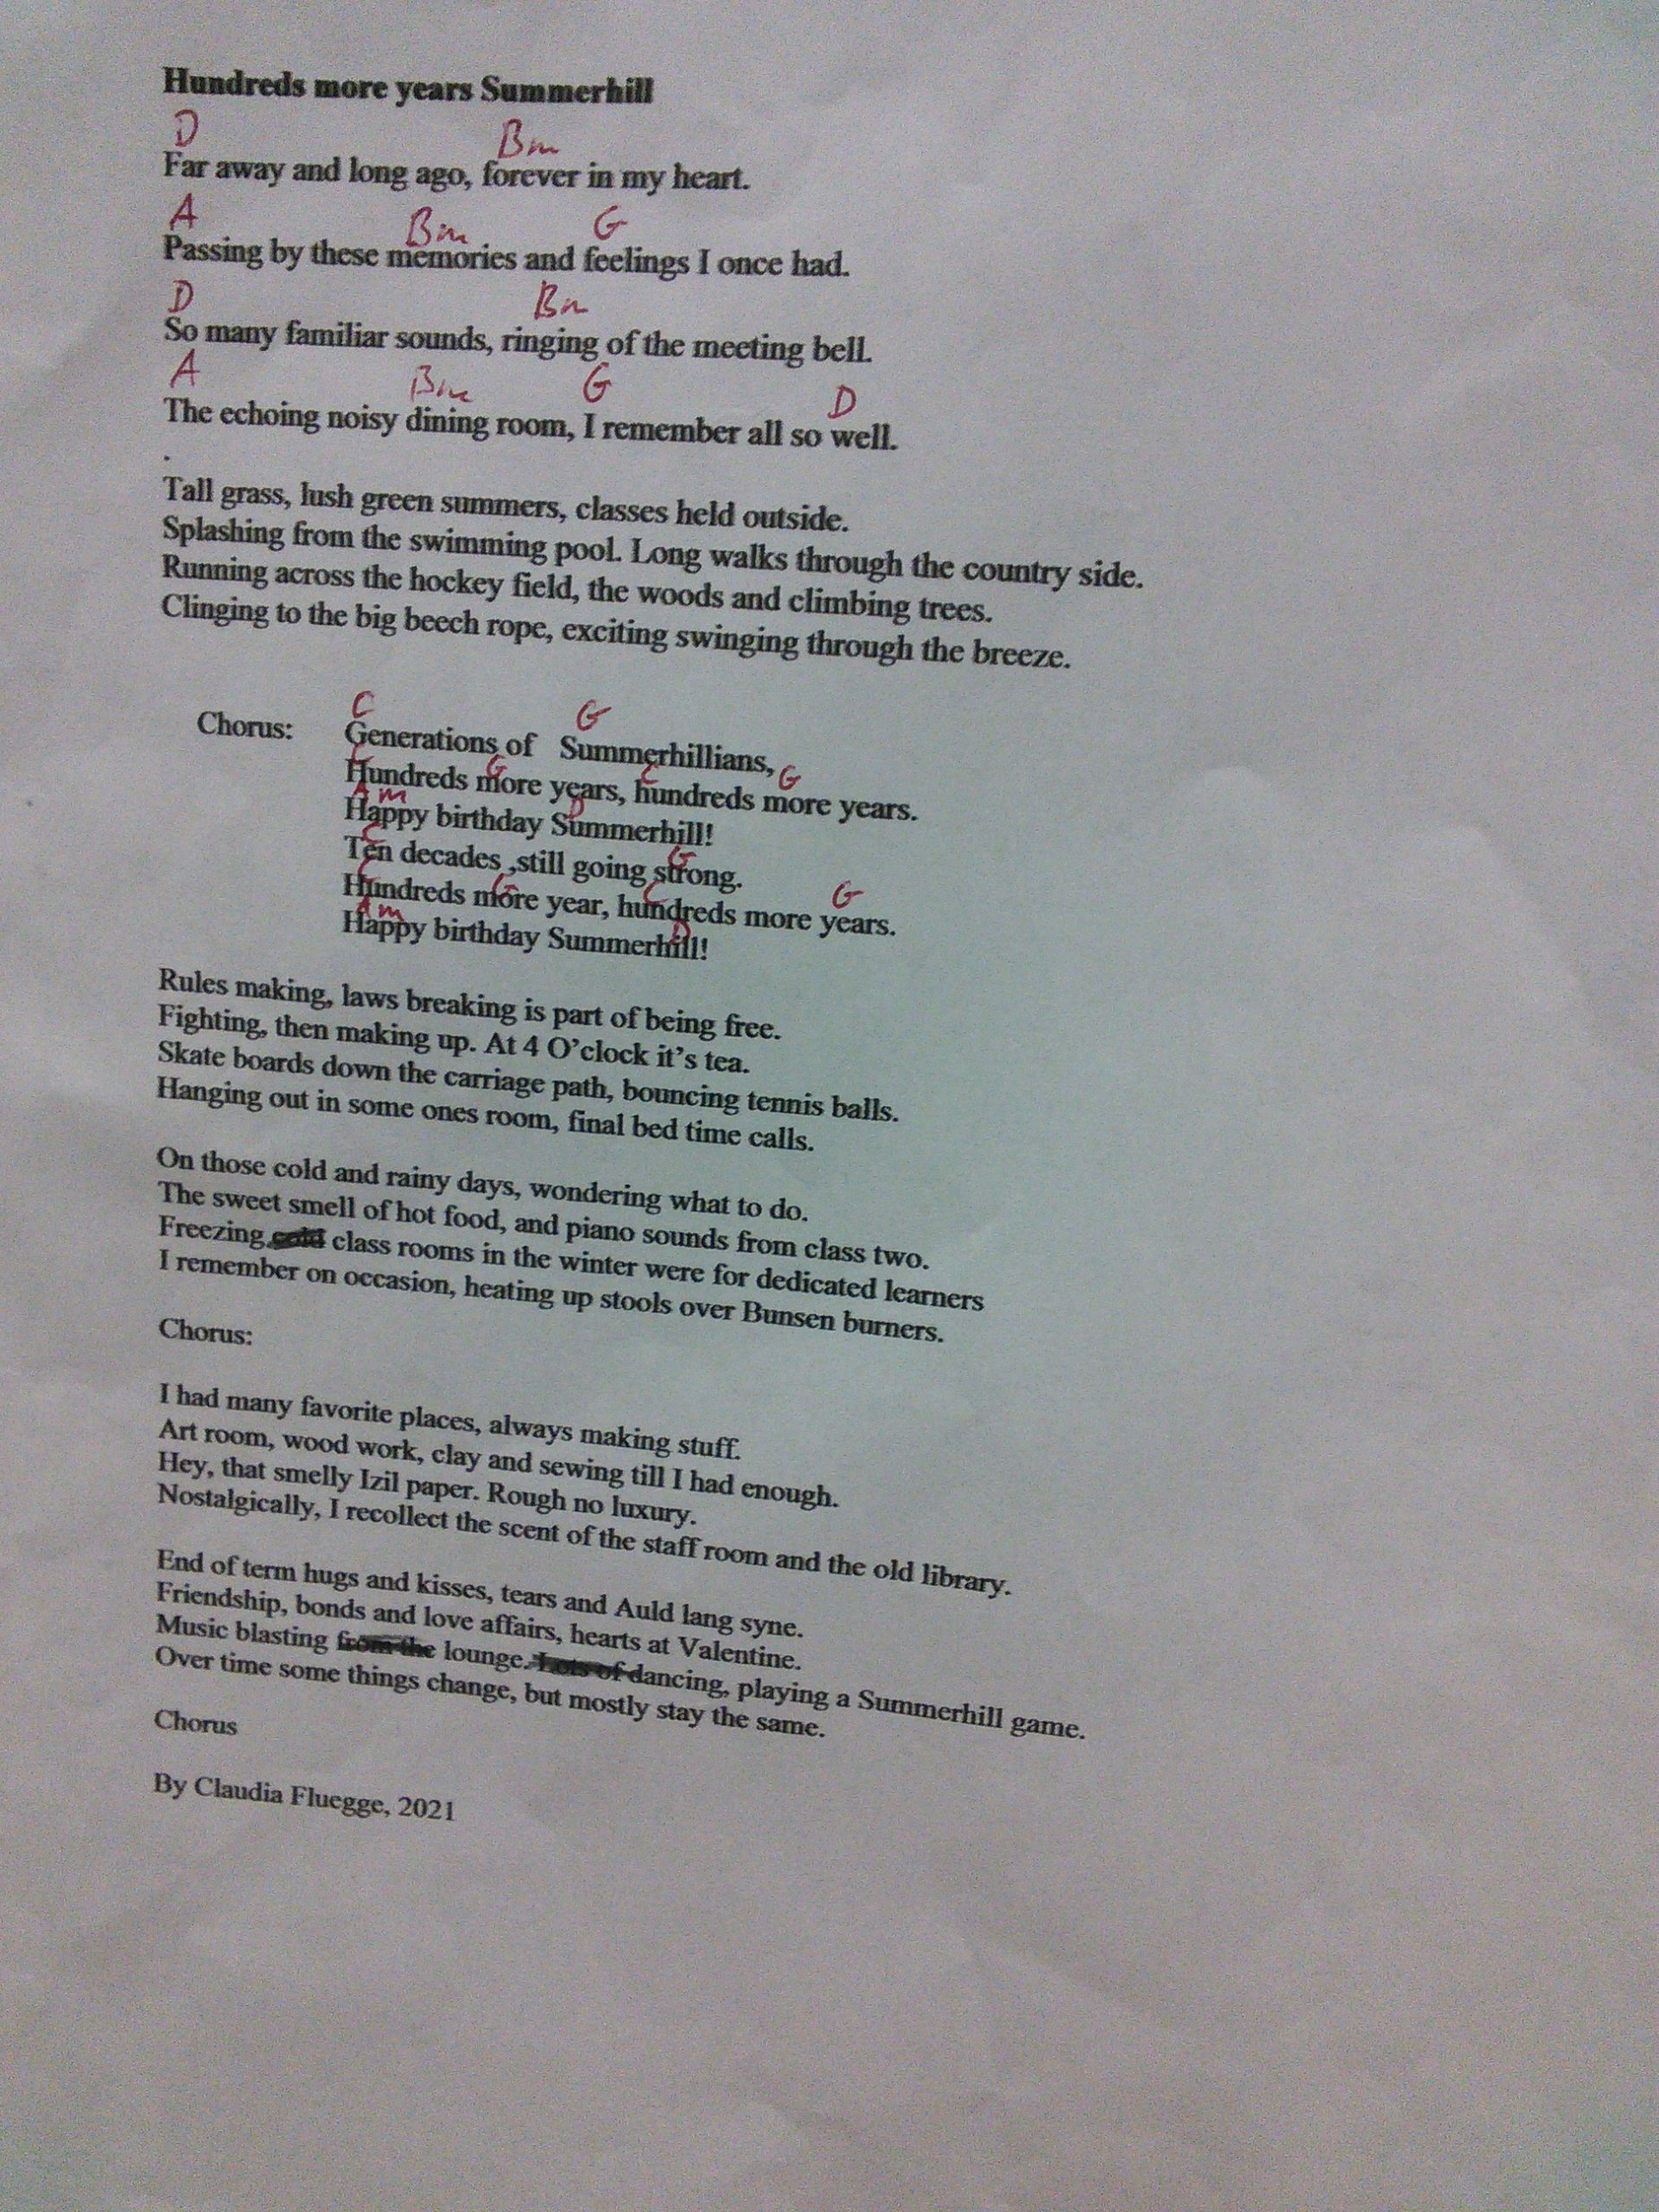 Hundreds more years Summerhill
D Bm
Far away and long ago, forever in my heart.
A Bm G
Passing by these memories and feelings I once had.
D Bm
So many familiar sounds, ringing of the meeting bell.
A Bm G D
The echoing noisy dining room, I remember all so well.
.
Tall grass, lush green summers, classes held outside.
Splashing from the swimming pool. Long walks through the country side.
Running across the hockey field, the woods and climbing trees.
Clinging to the big beech rope, exciting swinging through the breeze.
C G
Chorus: Generations of Summerhillians,
C G C G
Hundreds more years, hundreds more years.
Am D
Happy birthday Summerhill!
C G
Ten decades ,still going strong.
C G C G
Hundreds more year, hundreds more years.
Am D
Happy birthday Summerhill!
Rules making, laws breaking is part of being free.
Fighting, then making up. At 4 O’clock it’s tea.
Skate boards down the carriage path, bouncing tennis balls.
Hanging out in some ones room, final bed time calls.
On those cold and rainy days, wondering what to do.
The sweet smell of hot food, and piano sounds from class two.
Freezing cold class rooms in the winter were for dedicated learners
I remember on occasion, heating up stools over Bunsen burners.
Chorus:
I had many favorite places, always making stuff.
Art room, wood work, clay and sewing till I had enough.
Hey, that smelly Izil paper. Rough no luxury.
Nostalgically, I recollect the scent of the staff room and the old library.
End of term hugs and kisses, tears and Auld lang syne.
Friendship, bonds and love affairs, hearts at Valentine.
Music blasting from the lounge. Lots of dancing, playing a Summerhill game.
Over time some things change, but mostly stay the same.
Chorus
By Claudia Fluegge, 2021